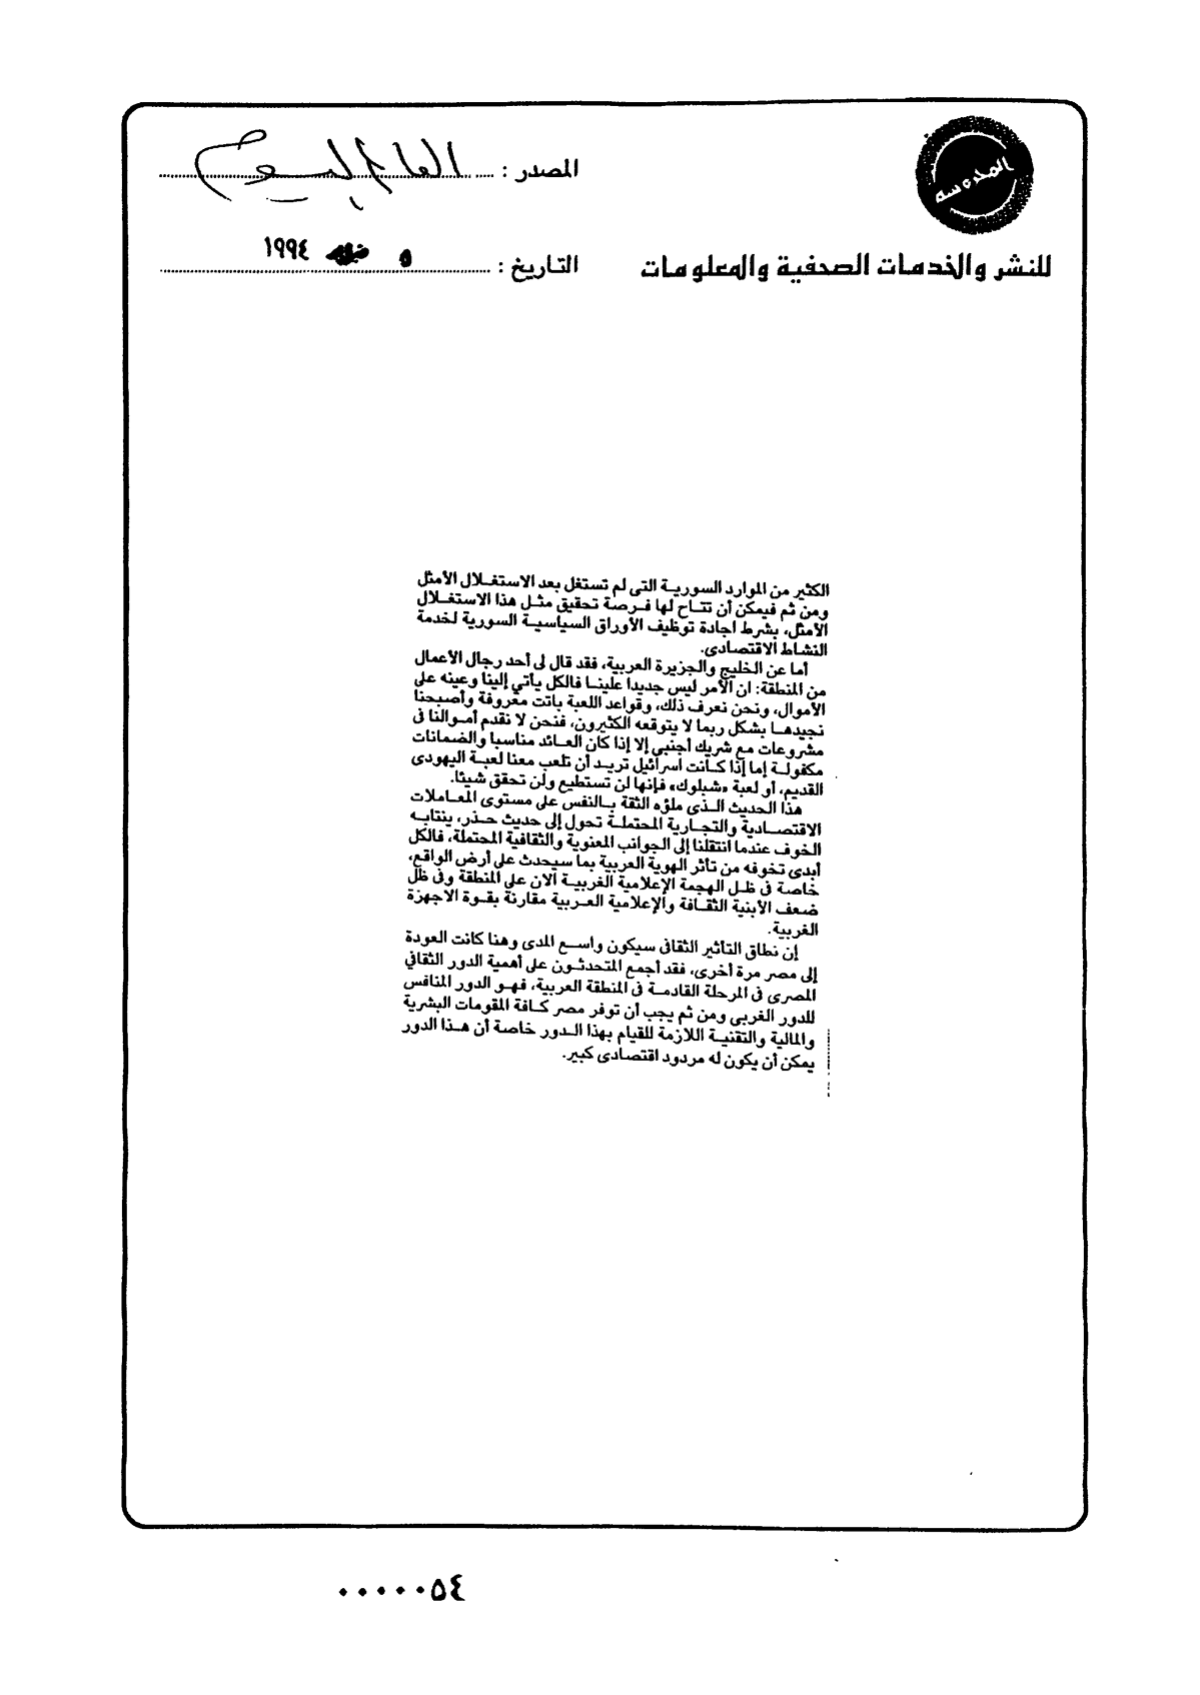 المحروسه
المصدر : العالم اليوم
للنشر والخدمات الصحفية والمعلومات
التاريخ : ٥ ١٩٩٤
الكثير من الموارد السورية التى لم تستغل بعد الاستغلال الأمثل
ومن ثم فيمكن أن تتاح لها فرصة تحقيق مثل هذا الاستغلال
الأمثل، بشرط اجادة توظيف الأوراق السياسية السورية لخدمة
النشاط الاقتصادى.
أما عن الخليج والجزيرة العربية، فقد قال لى أحد رجال الأعمال
من المنطقة: ان الأمر ليس جديدا علينا فالكل يأتي إلينا وعينه على
الأموال، ونحن نعرف ذلك، وقواعد اللعبة باتت معروفة وأصبحنا
نجيدها بشكل ربما لا يتوقعه الكثيرون، فنحن لا نقدم أموالنا فى
مشروعات مع شريك أجنبى إلا إذا كان العائد مناسبا والضمانات
مكفولة إما إذا كانت اسرائيل تريد أن تلعب معنا لعبة اليهودى
القديم، أو لعبة «شيلوك» فإنها لن تستطيع ولن تحقق شيئا.
هذا الحديث الذى ملؤه الثقة بالنفس على مستوى المعاملات
الاقتصادية والتجارية المحتملة تحول إلى حديث حذر، ينتابه
الخوف عندما انتقلنا إلى الجوانب المعنوية والثقافية المحتملة، فالكل
أبدى تخوفه من تأثر الهوية العربية بما سيحدث على أرض الواقع،
خاصة فى ظل الهجمة الإعلامية الغربية الان على المنطقة وفى ظل
ضعف الأبنية الثقافة والإعلامية العربية مقارنة بقوة الاجهزة
الغربية.
إن نطاق التأثير الثقافى سيكون واسع المدى وهنا كانت العودة
إلى مصر مرة أخرى، فقد أجمع المتحدثون على أهمية الدور الثقافي
المصرى فى المرحلة القادمة فى المنطقة العربية، فهو الدور المنافس
للدور الغربى ومن ثم يجب أن توفر مصر كافة المقومات البشرية
والمالية والتقنية اللازمة للقيام بهذا الدور خاصة أن هذا الدور
يمكن أن يكون له مردود اقتصادى كبير.
٠٠٠٠٠٥٤